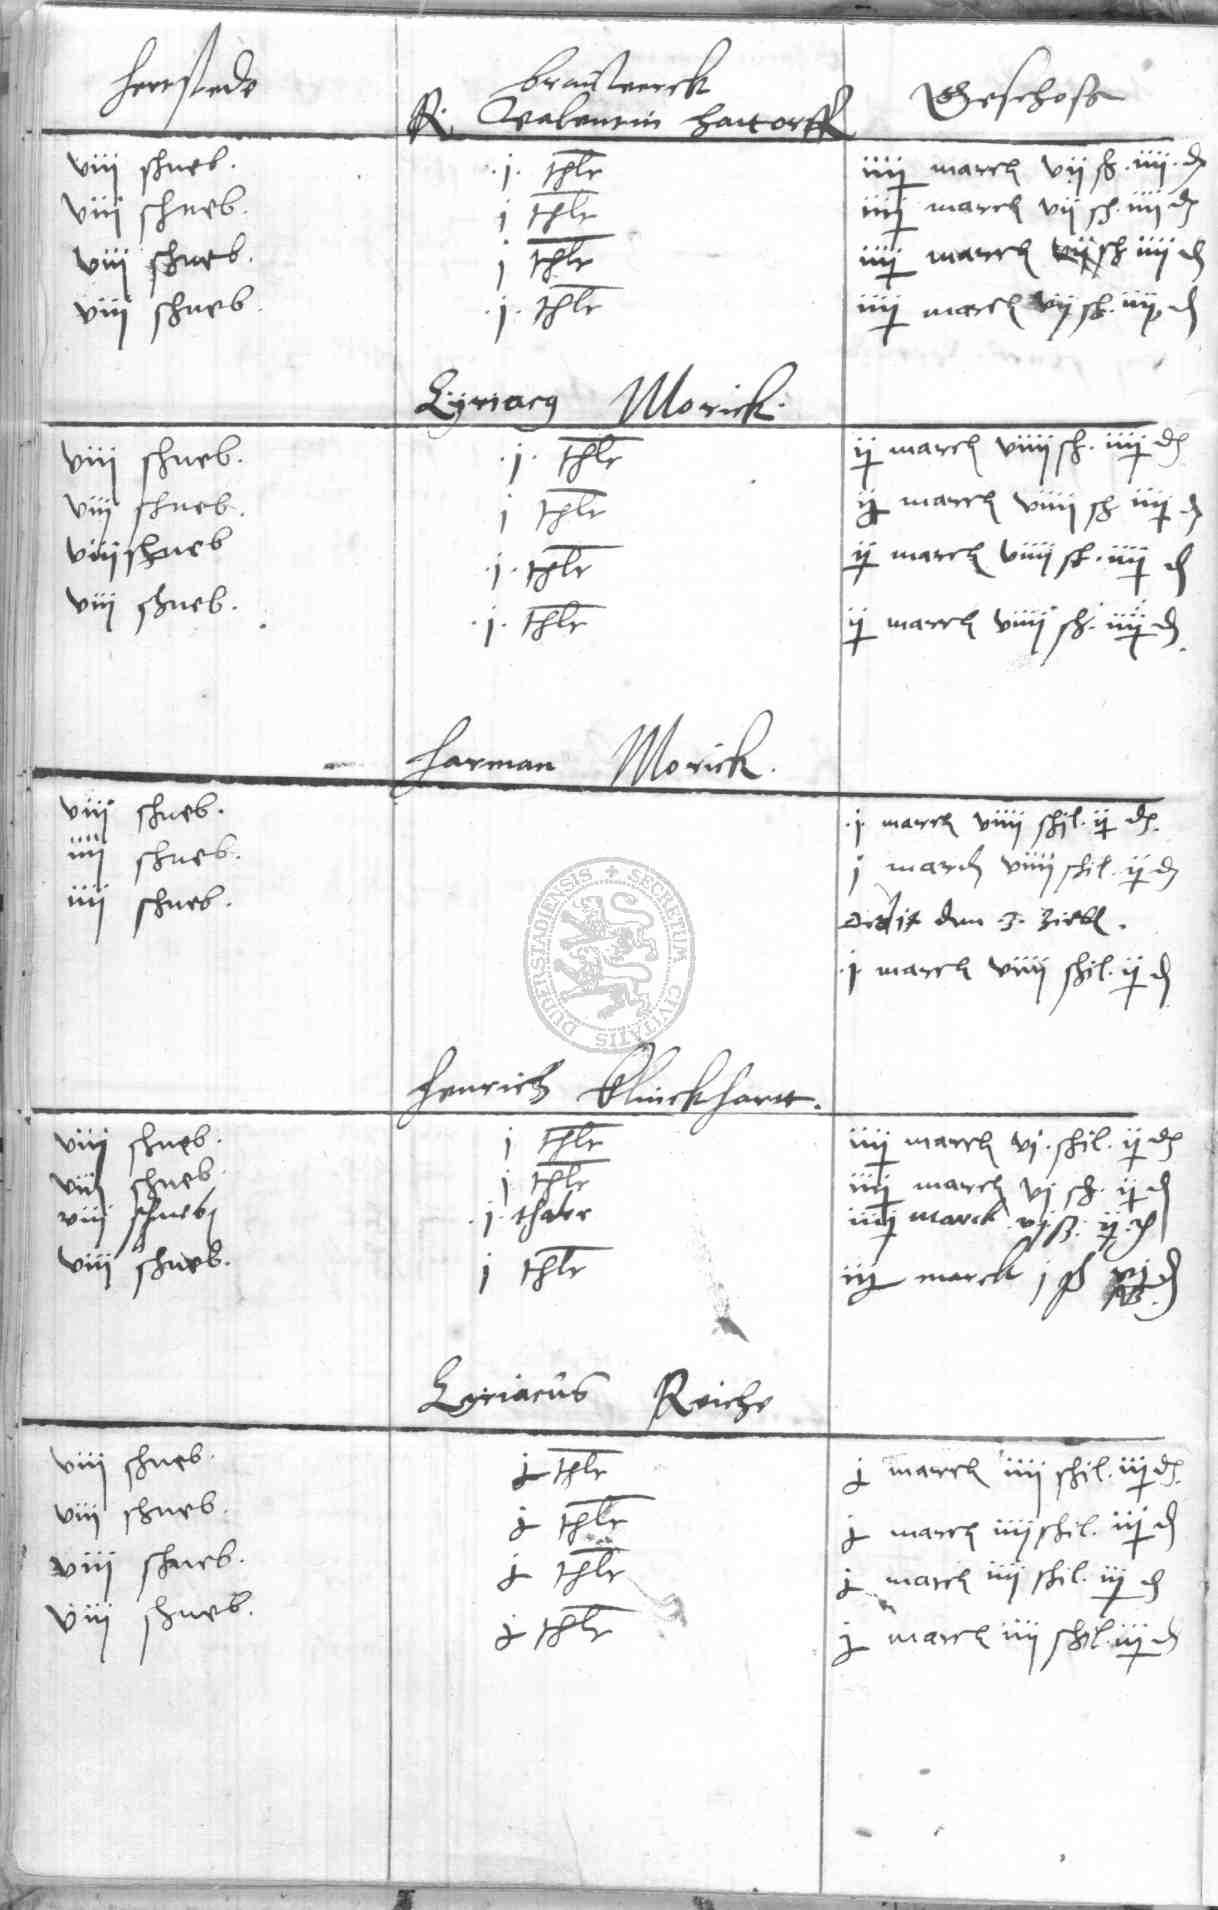 herstede brauwerck Geschoss
R. Valentin Hartorff
viii schneb. .j. thlr iiij marck vij sh. iiij d
viij schneb. j thlr iiij marck vij sh. iiij d
viij schneb. j thlr iiij marck vij sh iiij d
viij schneb. .j. thlr iiij marck vij sh. iiij d
Cyriacg Morick.
viij schneb. .j. thlr ij marck viiij sh. iiij d
viij schneb. j thlr ij marck viiij sh iiij d
viij schneb .j. thlr ij marck viiij sh. iiij d
viij schneb. .j. thlr ij marck viiij sh. iiij d.
Harman Morick.
viij schneb. .j. marck viiij schil. ij d.
iiij schneb. j marck viiij schil. ij d
iiij schneb. dedit dem .3. Zirkl.
.j. marck viiij schil. ij d
Henrich Klinckhartt.
viij schneb. j thlr iiij marck vj. schil. ij d
viij schneb. j thlr iiij marck vj sh. ij d
viij schneb .j. thaler iiij marck vj ß. ij d
viij schneb. j thlr iij marck j ß vj d
Cyriacus Reiche
viij schneb. j thlr j marck iiij schil. iij d.
viij schneb. j thlr j marck iiij schil. iij d
viij schneb. j thlr j marck iiij schil. iij d
viij schneb. j thlr j marck iiij schil. iij d
SECRETUM CIVITATIS DUDERSTADIENSIS